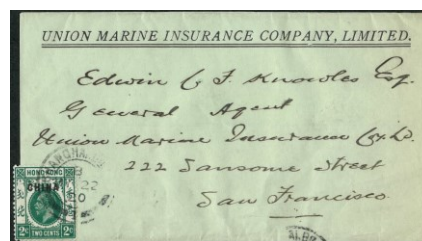 UNION MARINE INSURANCE COMPANY, LIMITED.
Edwin C F Knowles Esq.
General Agent
Union Marine Insurance Co. Ld.
222 Sansome Street
San Francisco
SHANGHAI
B
22
20
HONG KONG
CHINA
2c 2c
TWO CENTS